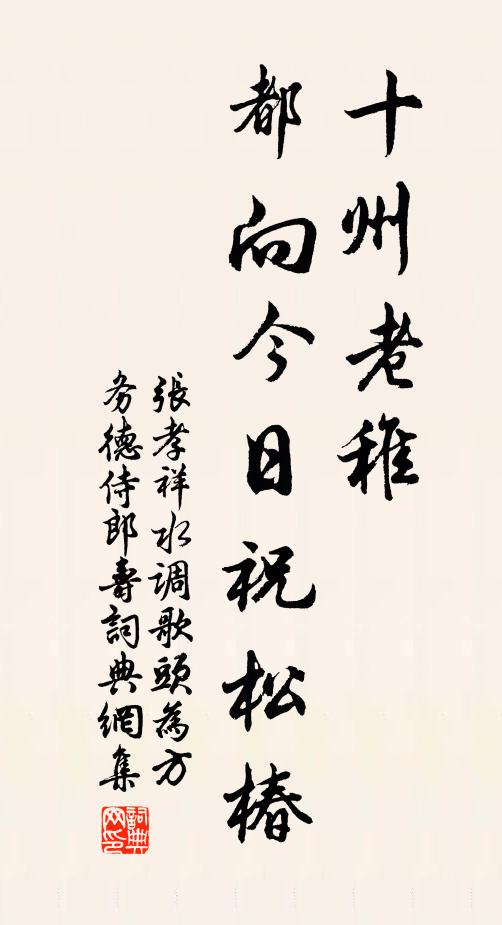 十州老稚
都向今日祝松椿
張孝祥水调歌頭為方
务德侍郎壽詞典網集
詞典网印